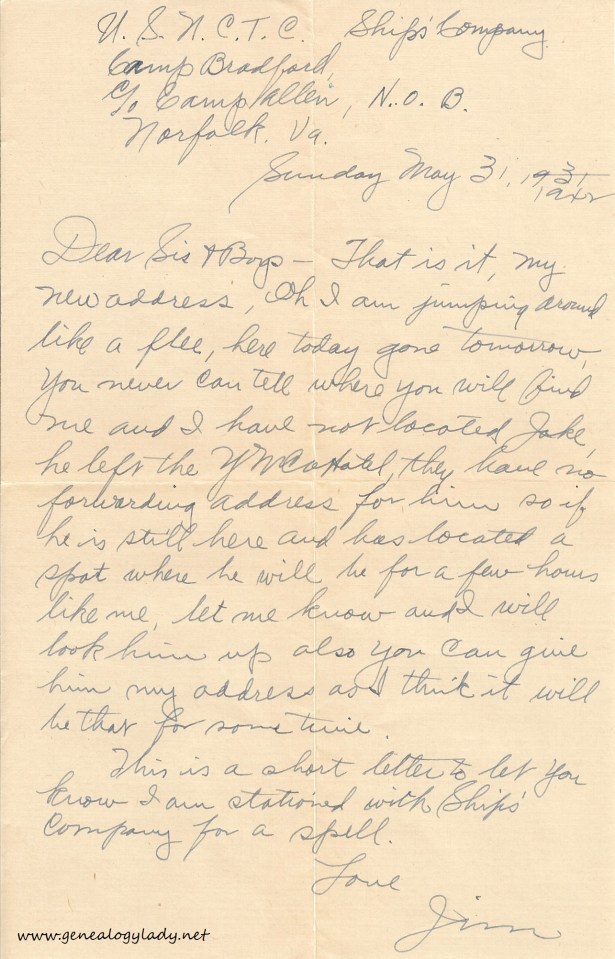 U.S.N.C.T.C. Ship's Company
Camp Bradford,
C/o Camp Allen, N.O.B.
Norfolk. Va.
Sunday May 31, 1931,
1942
Dear Sis & Boys – That is it, my
new address, Oh I am jumping around
like a flee, here today gone tomorrow,
You never can tell where you will find
me and I have not located Jake,
he left the YMCA Hotel, they have no
forwarding address for him so if
he is still here and has located a
spot where he will be for a few hours
like me, let me know and I will
look him up also you can give
him my address as I think it will
be that for some time.
This is a short letter to let you
know I am stationed with Ship's
Company for a spell.
Love
Jim
www.genealogylady.net